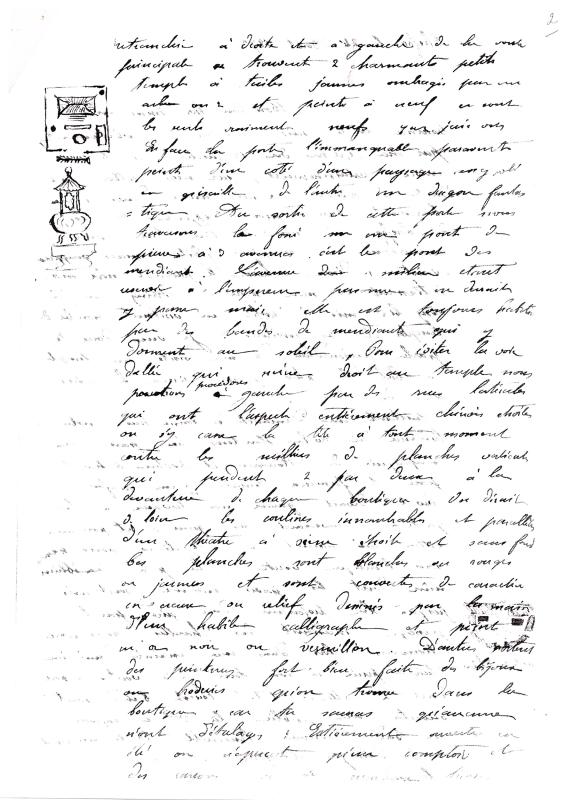 2
retranchée à droite et à gauche de la voute
principale se trouvent 2 charmants petits
temples à tuiles jaunes ombragés par un
arbre ou 2 et peints à neuf ce sont
les seuls vraiment neufs que j'aie vus
En face du porte l'immanquable paravent
peint d'un coté d'un paysage
en grisaille de l'autre un dragon fantas
=tique Au sortir de cette porte nous
traversons le fossé sur un pont de
pierre à 3 avenues c'est le pont des
mendiants L'avenue du milieu étant
réservée à l'empereur personne en dirait
y passe mais elle est toujours habitée
par des bandes de mendiants qui y
dorment au soleil Pour éviter la voie
dallée qui mène droit au temple nous
procédons à gauche par des rues latérales
qui ont l'aspect entièrement chinois étroites
on s'y casse la tête à tout moment
contre les milliers de planches verticales
qui pendent 2 par deux à la
devanture de chaque boutique On dirait
de loin les coulisses innombrables et parallèles
d'un théâtre à scène étroite et sans fond
Ces planches sont blanches ou rouges
ou jaunes et sont couvertes de caractères
en creux ou relief dessinés par la main
d'un habile calligraphe et peint
en or noir ou vermillon D'autres portent
des peintures fort bien faites des bijoux
ou broderies qu'on trouve dans la
boutique car tu sauras qu'aucune
n'ont d'étalages : Entièrement ouverte en
été on aperçoit comptoir et
des